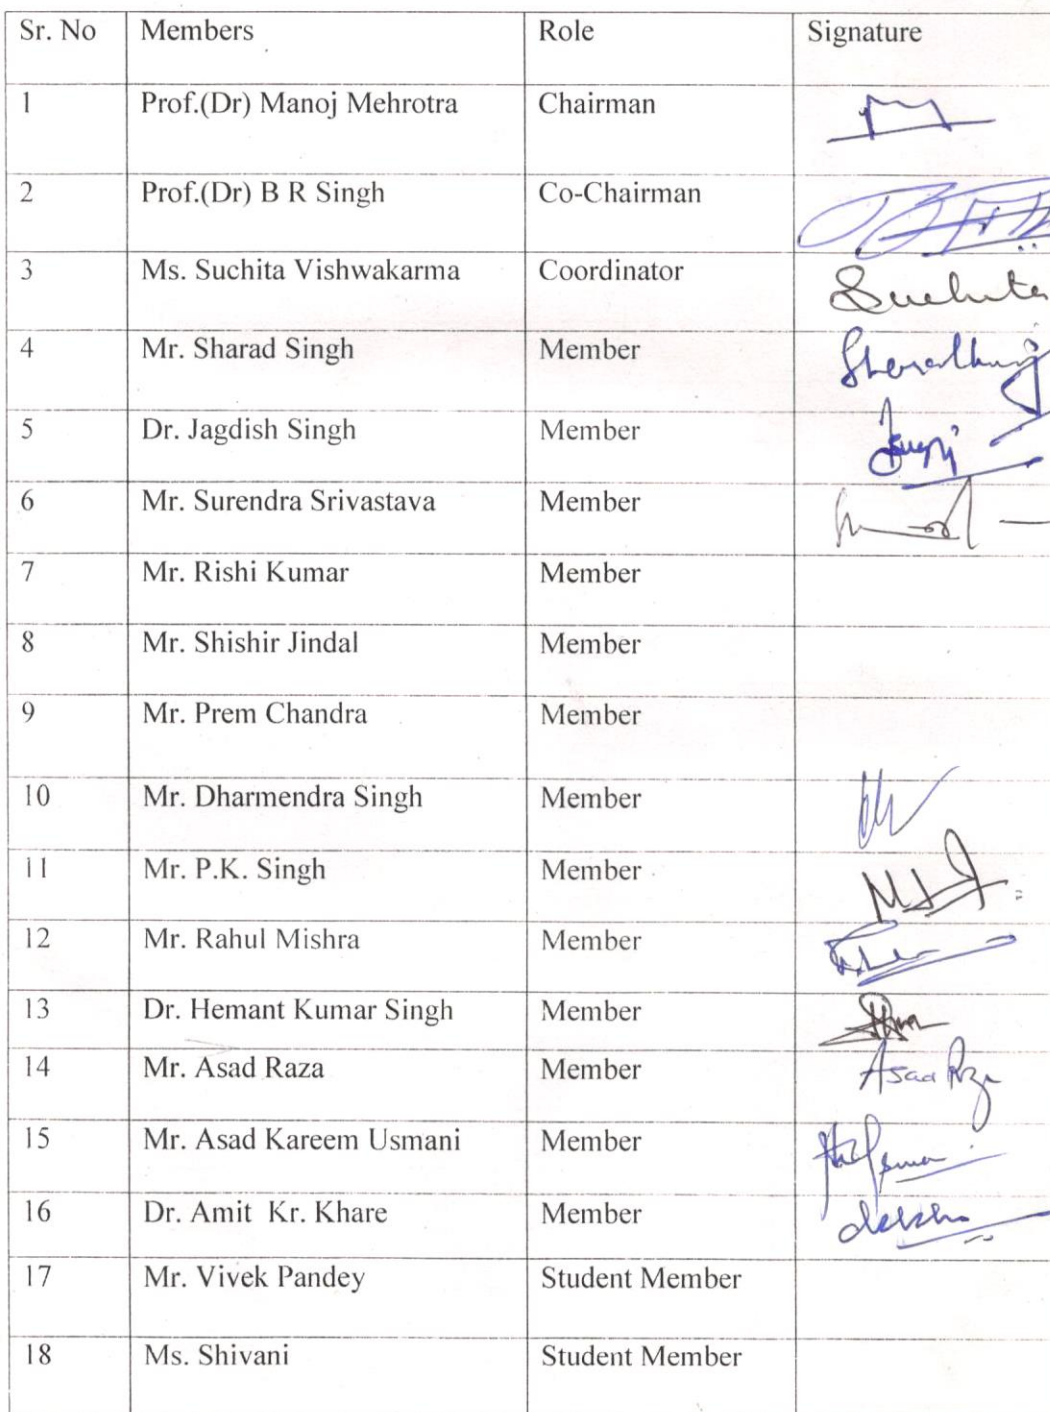 Sr. No Members Role Signature
1 Prof.(Dr) Manoj Mehrotra Chairman
2 Prof.(Dr) B R Singh Co-Chairman
3 Ms. Suchita Vishwakarma Coordinator Suchita
4 Mr. Sharad Singh Member
5 Dr. Jagdish Singh Member
6 Mr. Surendra Srivastava Member
7 Mr. Rishi Kumar Member
8 Mr. Shishir Jindal Member
9 Mr. Prem Chandra Member
10 Mr. Dharmendra Singh Member
11 Mr. P.K. Singh Member
12 Mr. Rahul Mishra Member
13 Dr. Hemant Kumar Singh Member
14 Mr. Asad Raza Member Asad Raza
15 Mr. Asad Kareem Usmani Member
16 Dr. Amit Kr. Khare Member
17 Mr. Vivek Pandey Student Member
18 Ms. Shivani Student Member